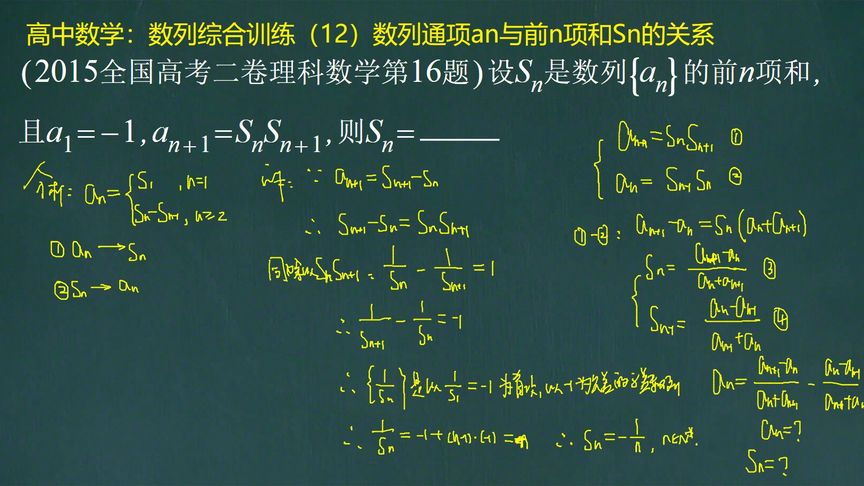 高中数学：数列综合训练（12）数列通项an与前n项和Sn的关系
(2015全国高考二卷理科数学第16题)设Sₙ是数列{aₙ}的前n项和,
且a₁=-1,aₙ₊₁=SₙSₙ₊₁,则Sₙ=______
分析: aₙ={S₁ ,n=1
Sₙ-Sₙ₋₁, n≥2
① aₙ → Sₙ
② Sₙ → aₙ
解: ∵ aₙ₊₁=Sₙ₊₁-Sₙ
∴ Sₙ₊₁-Sₙ=SₙSₙ₊₁
同除以SₙSₙ₊₁: 1/Sₙ - 1/Sₙ₊₁ =1
∴ 1/Sₙ₊₁ - 1/Sₙ =-1
∴ {1/Sₙ}是以1/S₁=-1为首项,以-1为公差的等差数列
∴ 1/Sₙ =-1+(n-1)·(-1)=-n ∴ Sₙ=-1/n, n∈N*.
{ aₙ₊₁=SₙSₙ₊₁ ①
aₙ= Sₙ₋₁Sₙ ②
①-②: aₙ₊₁-aₙ=Sₙ(aₙ+aₙ₊₁)
{ Sₙ= (aₙ₊₁-aₙ)/(aₙ+aₙ₊₁) ③
Sₙ₋₁= (aₙ-aₙ₋₁)/(aₙ₋₁+aₙ) ④
aₙ= (aₙ₊₁-aₙ)/(aₙ+aₙ₊₁) - (aₙ-aₙ₋₁)/(aₙ₋₁+aₙ
aₙ=?
Sₙ=?